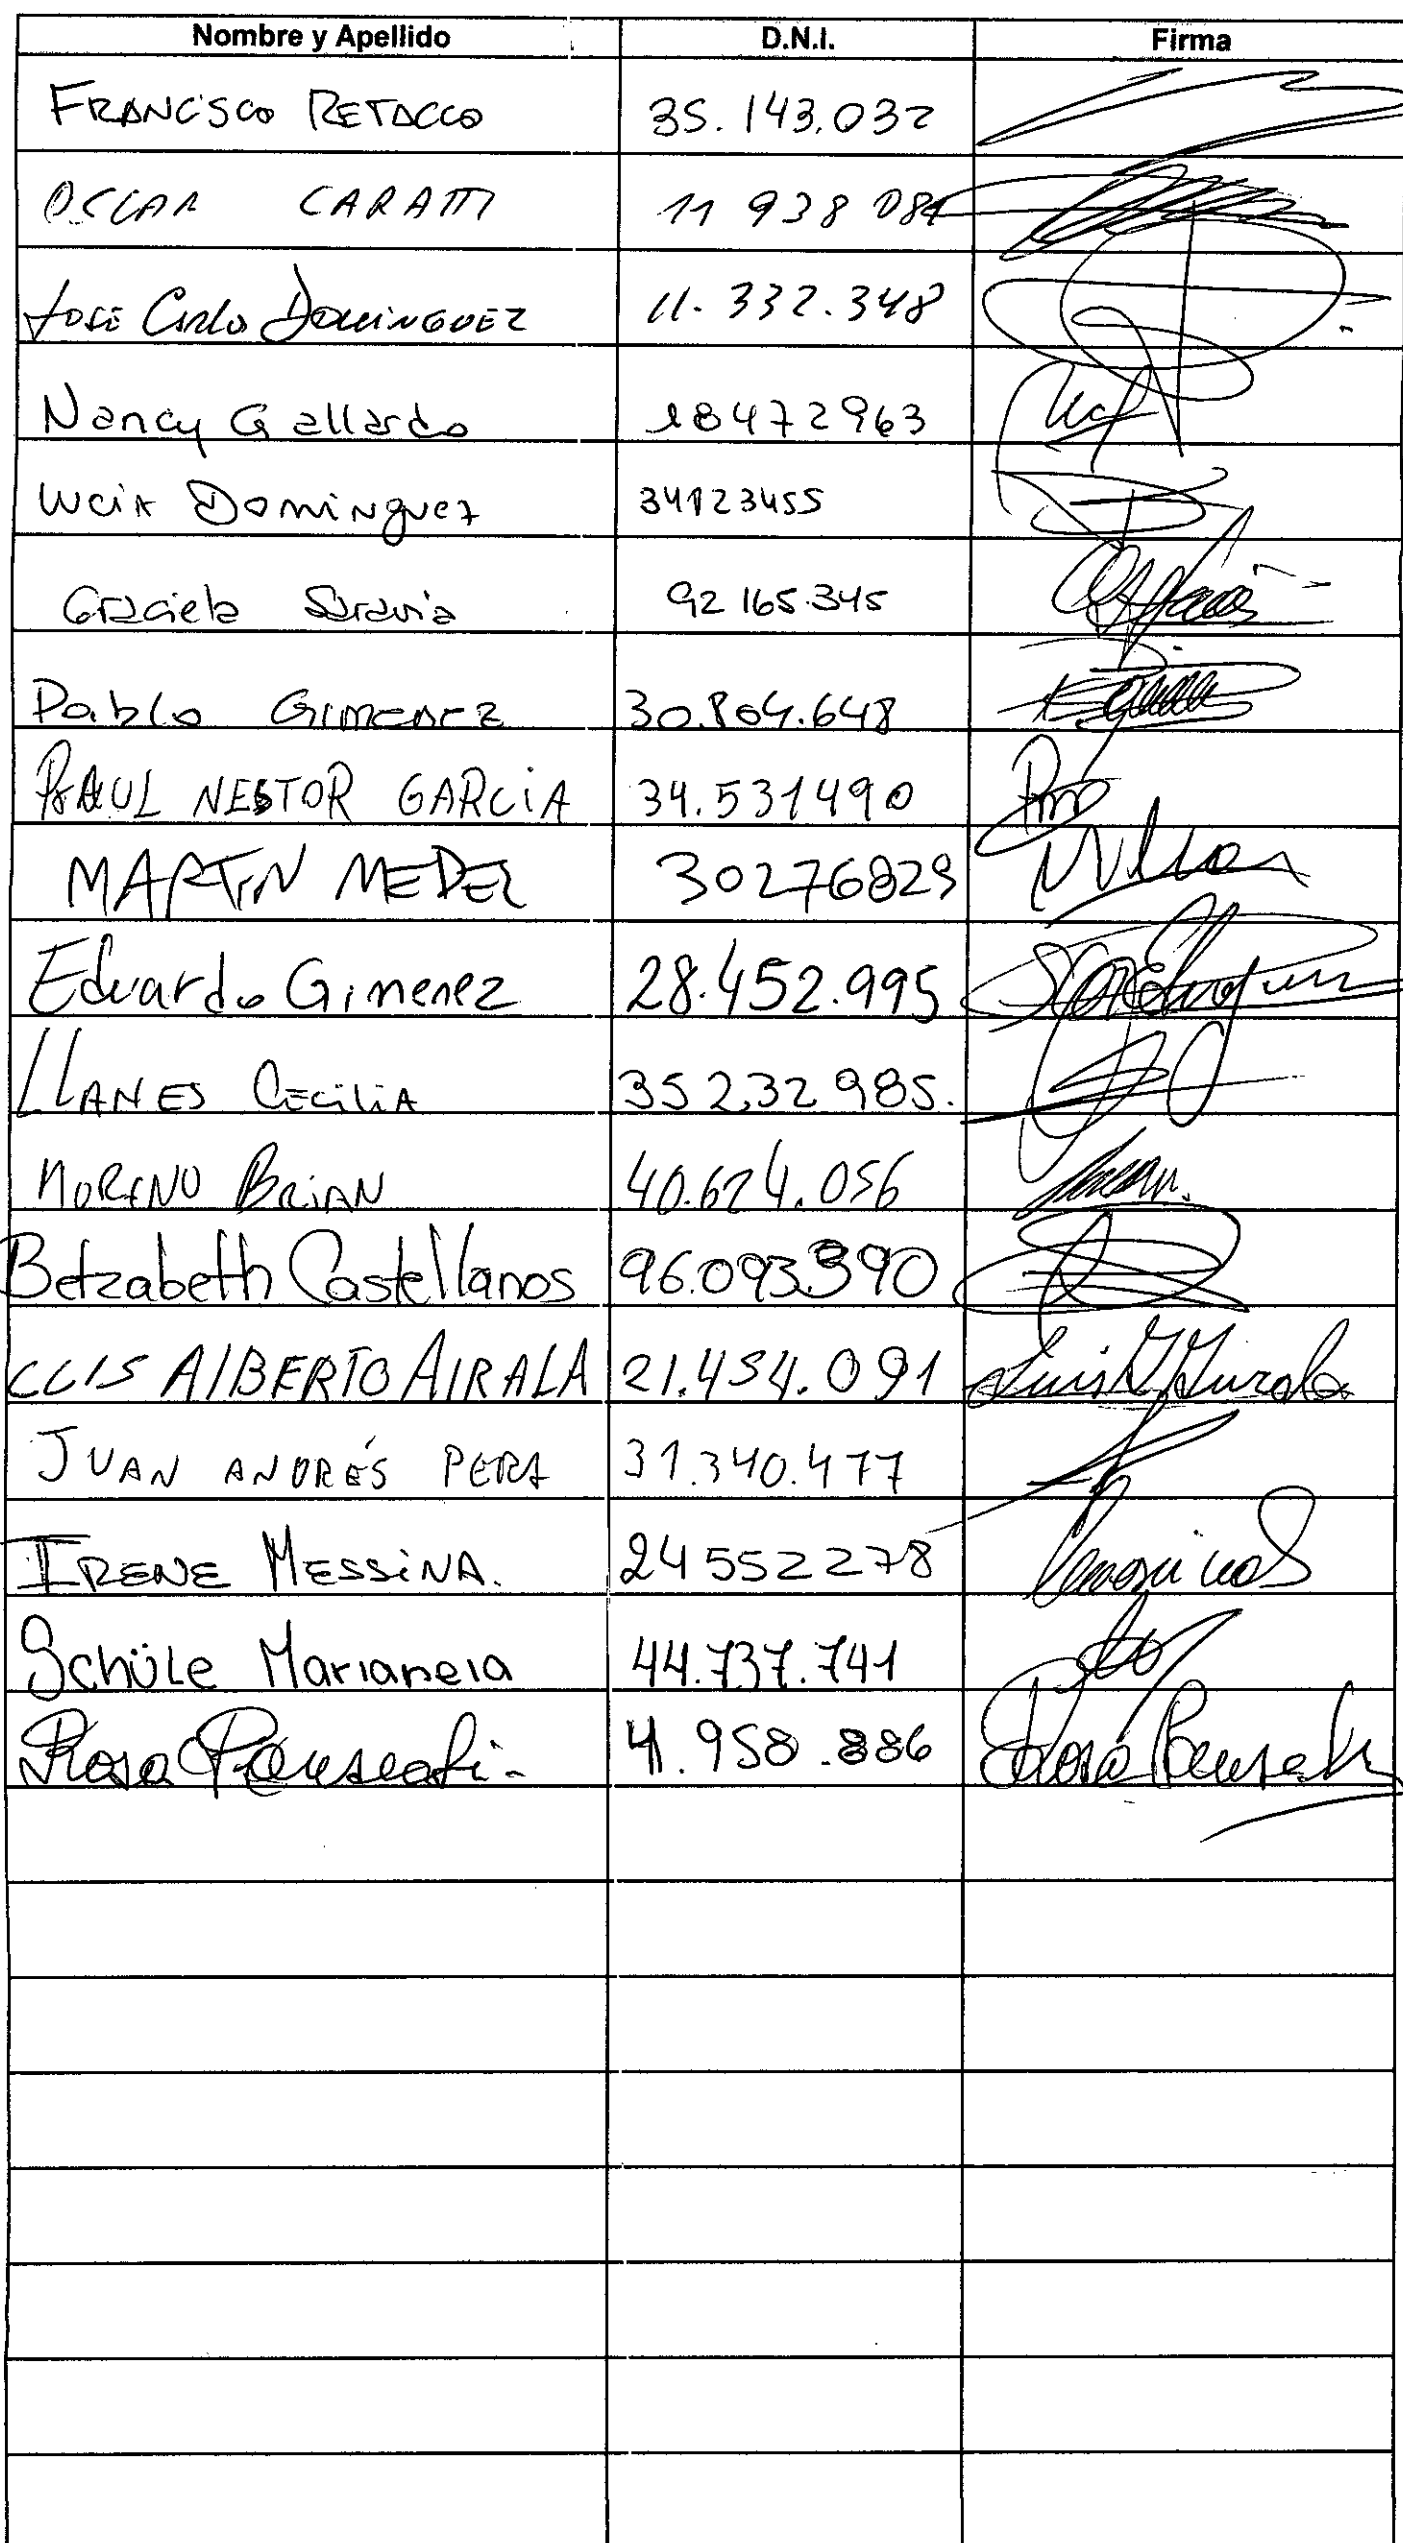 Nombre y Apellido D.N.I. Firma
FRANCISCO RETACCO 35.143.032
OSCAR CARATTI 11 938 081
JOSE Carlo DOMINGUEZ 11.332.348
Nancy Gallardo 18472963
LUCIA Dominguez 34123455
Graciela Saravia 92 165.345
Pablo GIMENEZ 30.804.648
RAUL NESTOR GARCIA 34.531490
MARTIN MEDEL 30276829
Eduardo Gimenez 28.452.995
LLANES CECILIA 35232985.
MORENO BRIAN 40.624.056
Betzabeth Castellanos 96.093.390
LUIS ALBERTO AIRALA 21.454.091
JUAN ANDRÉS PERA 31.340.477
IRENE MESSINA. 24552278
Schüle Marianela 44.737.741
Rosa 4.958.886 Rosa